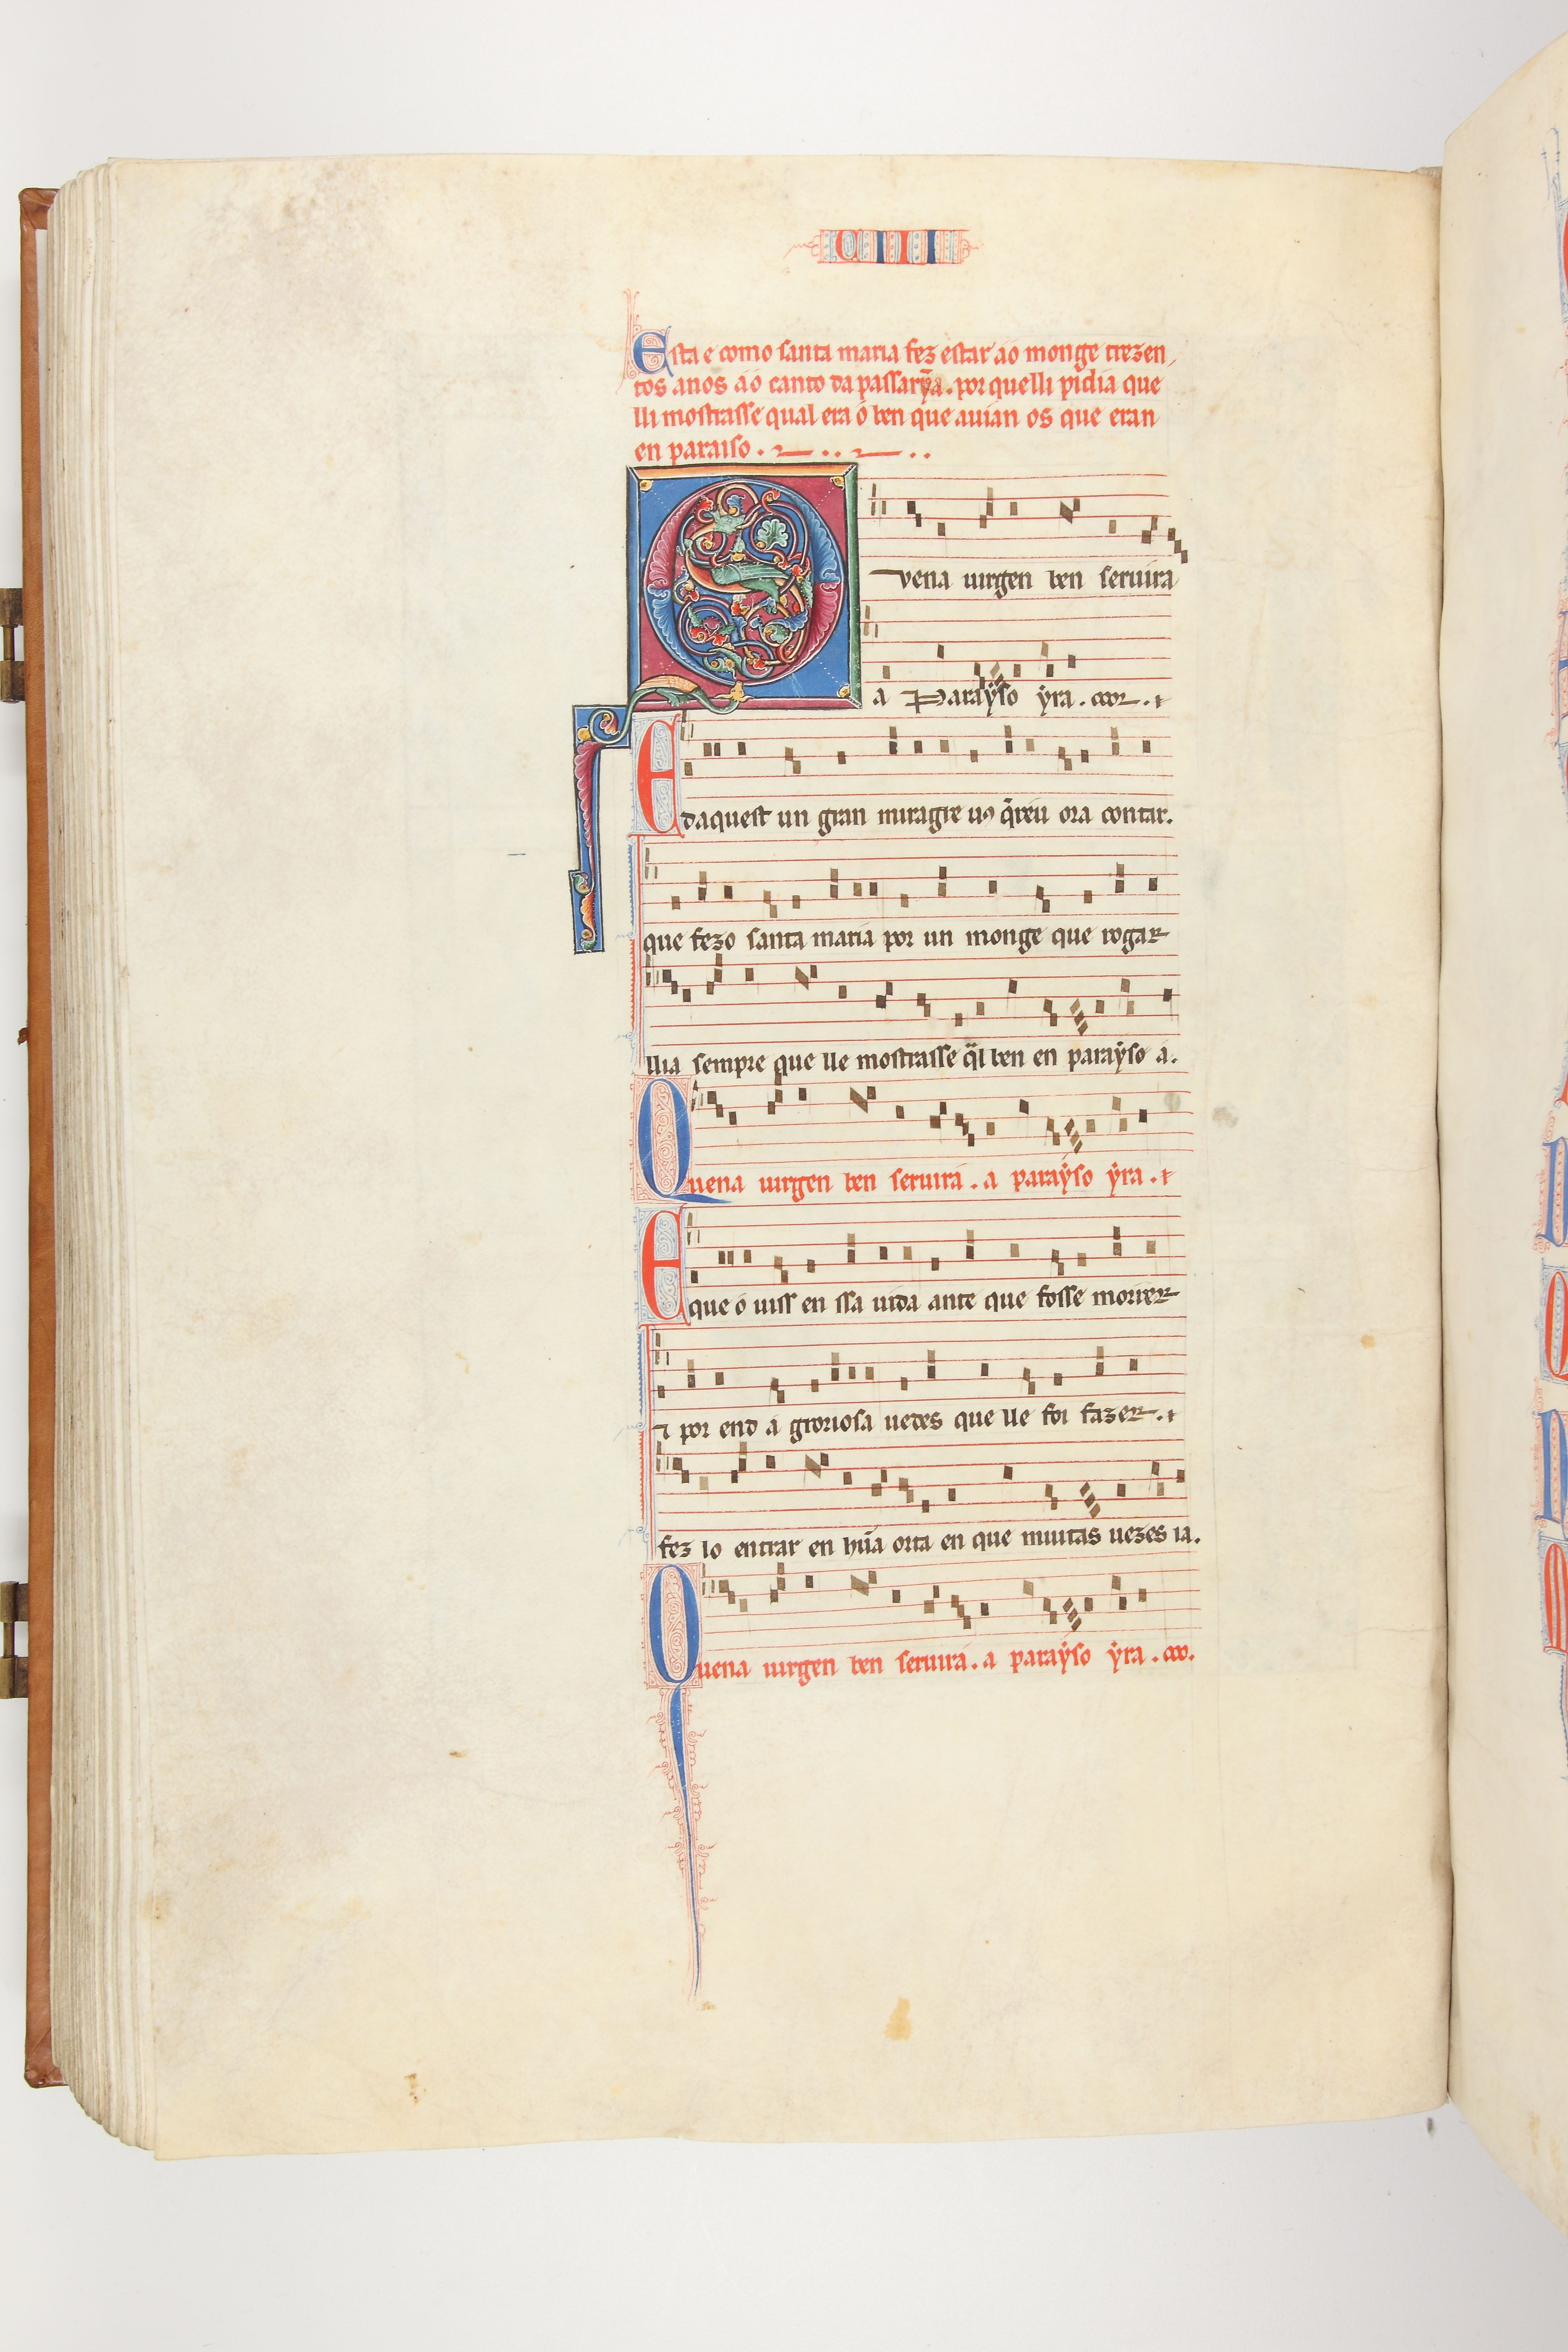 CIII
Esta e como santa maria fez estar ao monge trezen
tos anos ao canto da passarỹa. por quelli pidia que
lli mostrasse qual era o ben que auian os que eran
en paraiso.
Quena uirgen ben seruira
a Paraẏso ẏra.
E daquest un gran miragre uꝯ q̃reu ora contar.
que fezo santa maria por un monge que rogar
llia sempre que lle mostrasse q̃l ben en paraẏso á.
Quena uirgen ben seruirá. a paraẏso ẏra.
E que o uiss en ssa uida ante que fosse morrer
⁊ por end a groriosa uedes que lle foi fazer.
fez lo entrar en hũa orta en que muitas uezes ia.
Quena uirgen ben seruirá. a paraẏso ẏra.